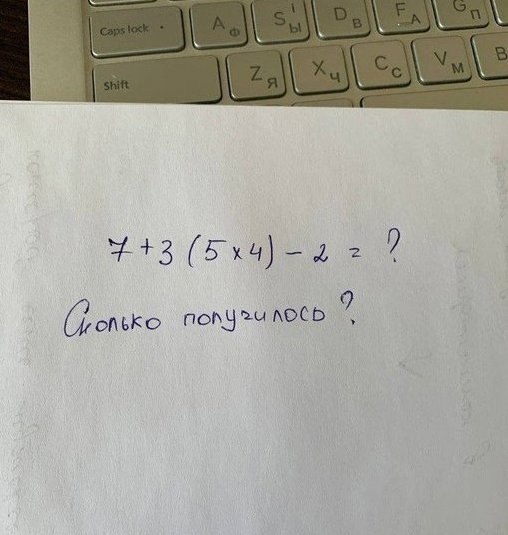 Caps lock A Ф S І Ы D В F А G П
Shift Z Я X Ч C С V М B
7+3 (5×4) - 2 = ?
Сколько получилось?